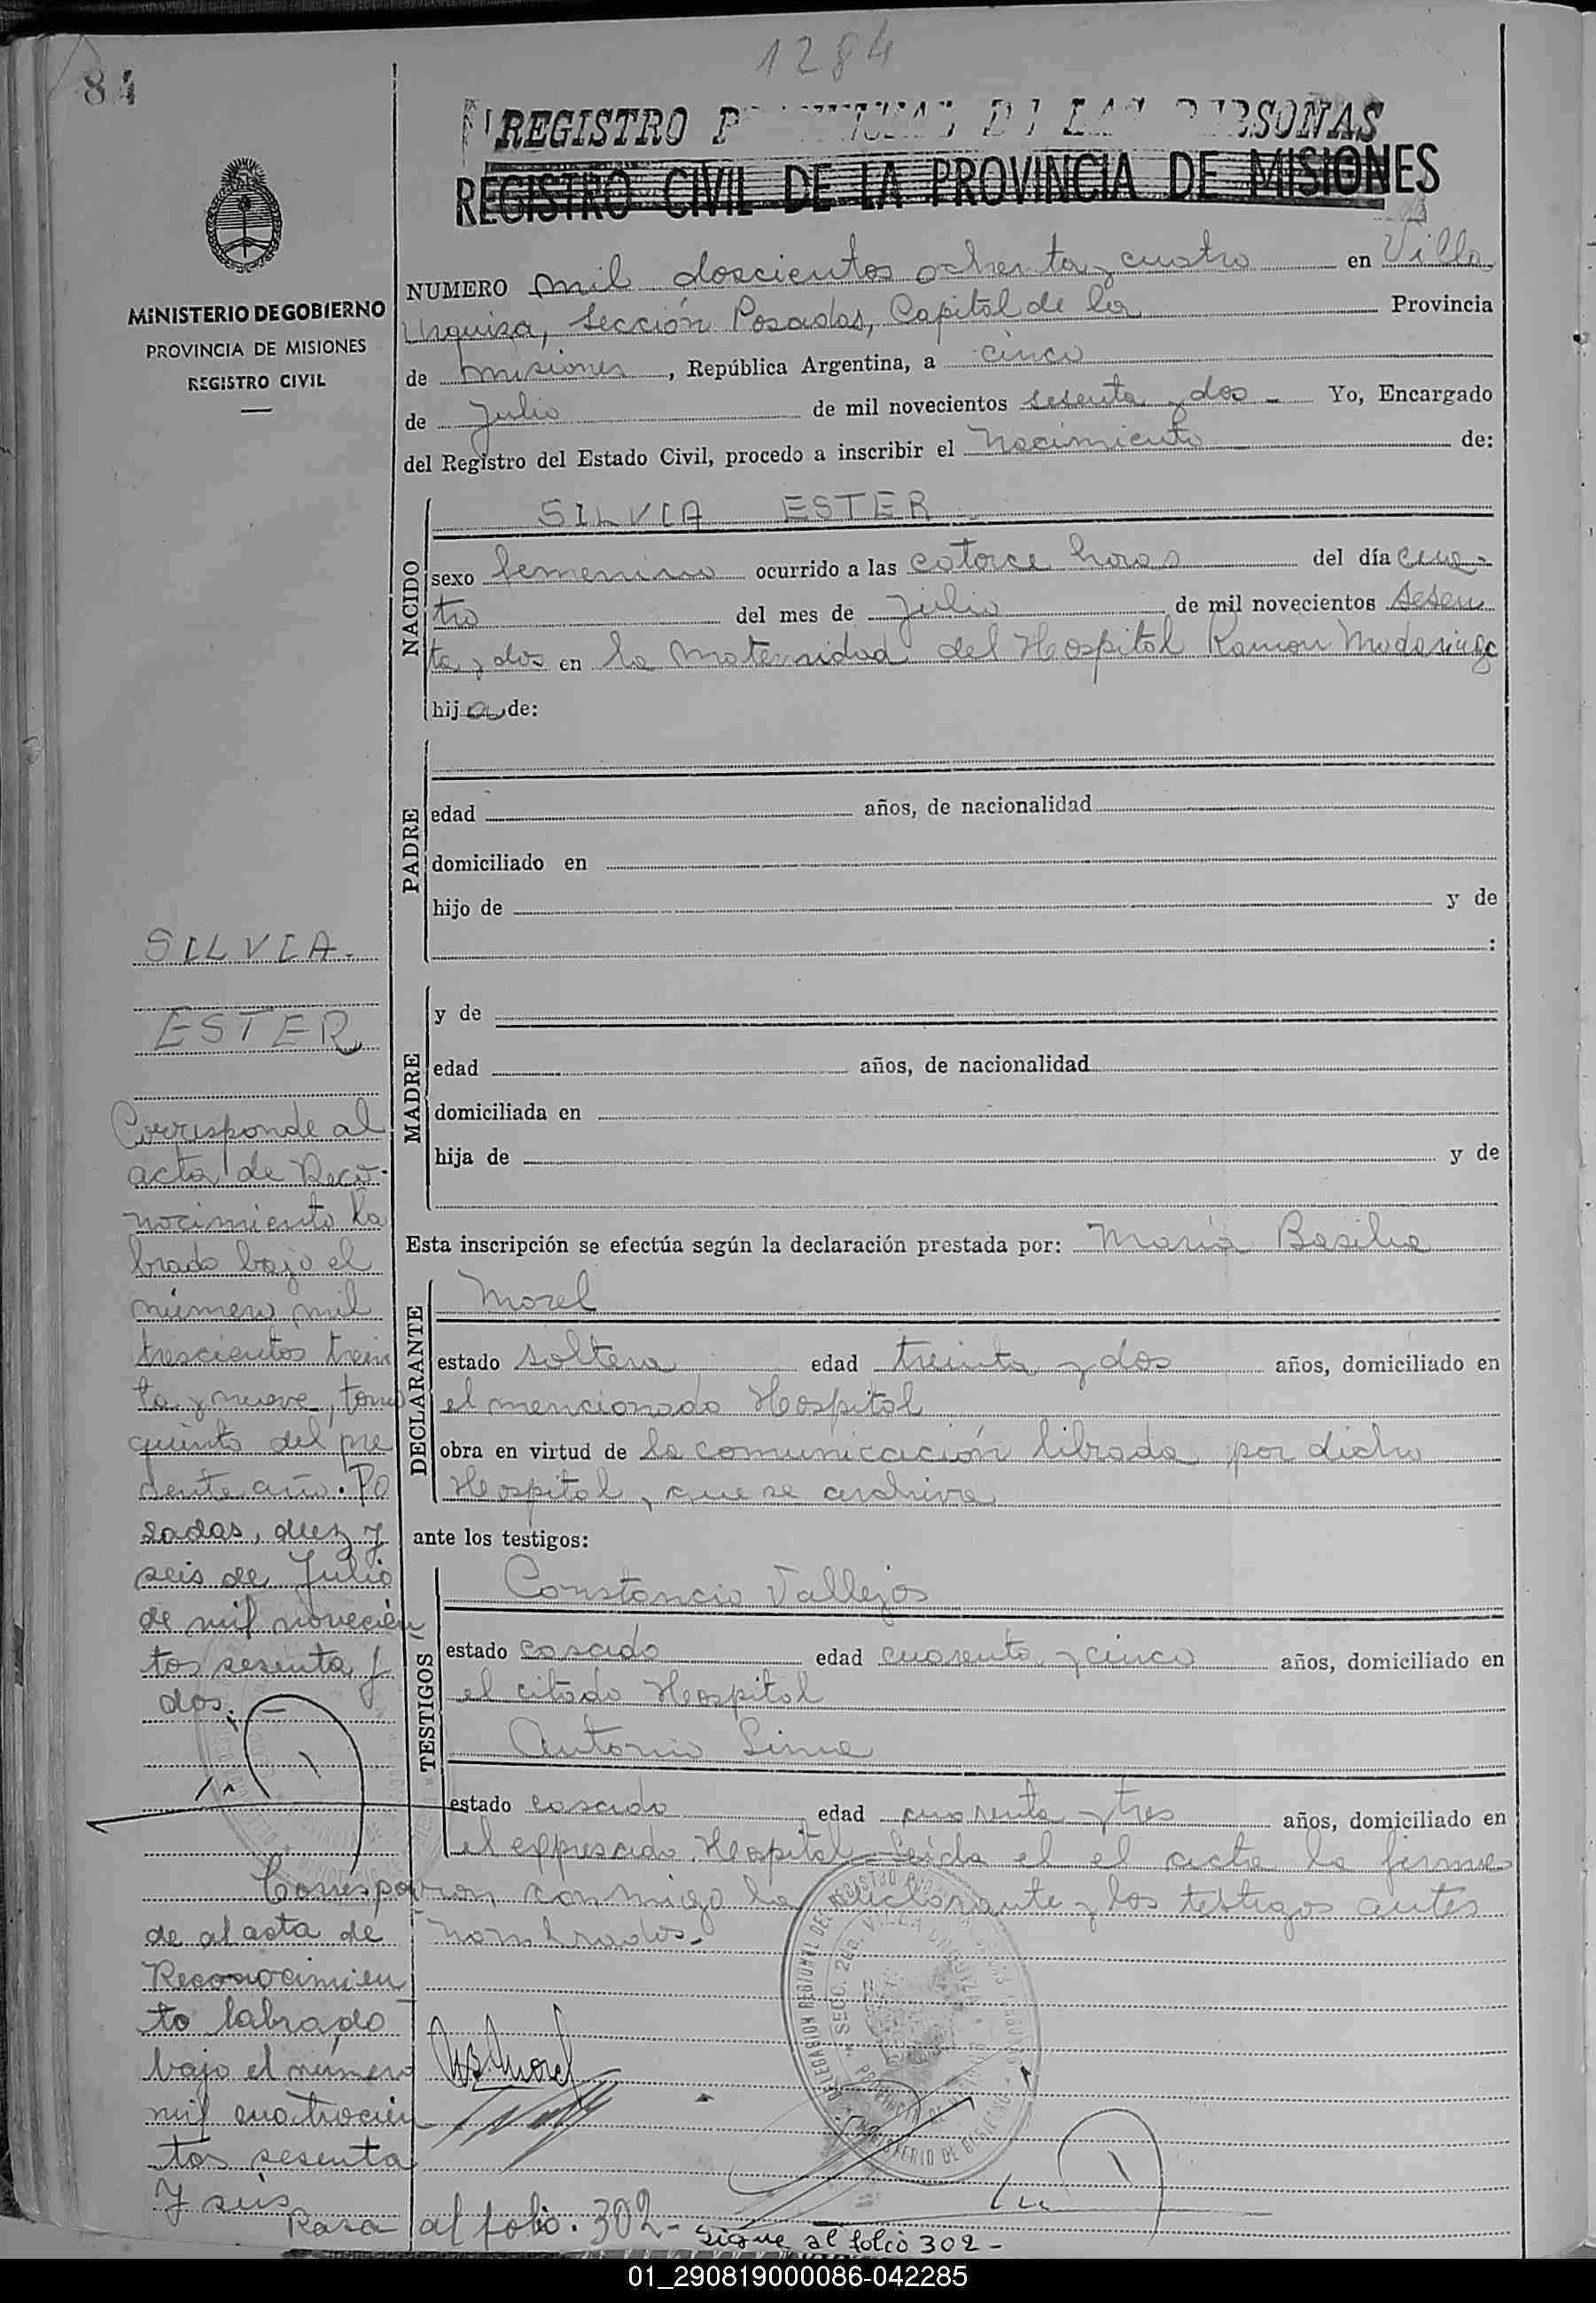 1284
84
REGISTRO PERSONAS
REGISTRO CIVIL DE LA PROVINCIA DE MISIONES
MINISTERIO DE GOBIERNO
PROVINCIA DE MISIONES
REGISTRO CIVIL
NUMERO mil doscientos ochenta y cuatro en Villa
Urquiza, Sección Posadas, Capital de la Provincia
de Misiones, República Argentina, a cinco
de Julio de mil novecientos sesenta y dos - Yo, Encargado
del Registro del Estado Civil, procedo a inscribir el Nacimiento de:
NACIDO
SILVIA ESTER
sexo femenino ocurrido a las catorce horas del día cua-
tro del mes de Julio de mil novecientos sesen
ta y dos en la Maternidad del Hospital Ramon Madariaga
hija de:
PADRE
edad años, de nacionalidad
domiciliado en
hijo de y de
:
MADRE
y de
edad años, de nacionalidad
domiciliada en
hija de y de
Esta inscripción se efectúa según la declaración prestada por: María Basilia
DECLARANTE
Morel
estado soltera edad treinta y dos años, domiciliado en
el mencionado Hospital
obra en virtud de la comunicación librada por dicho
Hospital, que se archiva
ante los testigos:
TESTIGOS
Constancio Vallejos
estado casado edad cuarenta y cinco años, domiciliado en
el citado Hospital
Antonio
estado casado edad cuarenta y tres años, domiciliado en
el expresado Hospital - Leída el el acta la firma
ron conmigo la declarante y los testigos antes
nombrados.-
SILVIA.
ESTER
Corresponde al
acta de Reco-
nocimiento la
brado bajo el
número mil
trescientos trein
ta y nueve, tomo
quinto del pre
sente año. Po
sadas, diez y
seis de Julio
de mil novecien
tos sesenta y
dos.-
Correspon
de al acta de
Reconocimien
to labrado
bajo el número
mil cuatrocien
tos sesenta
y seis
Pasa al folio. 302-
sigue al folio 302-
DELEGACION REGIONAL DEL REGISTRO
SECC. 2da. VILLA URQUIZA
PROVINCIA DE
MINISTERIO DE GOBIERNO
01_290819000086-042285